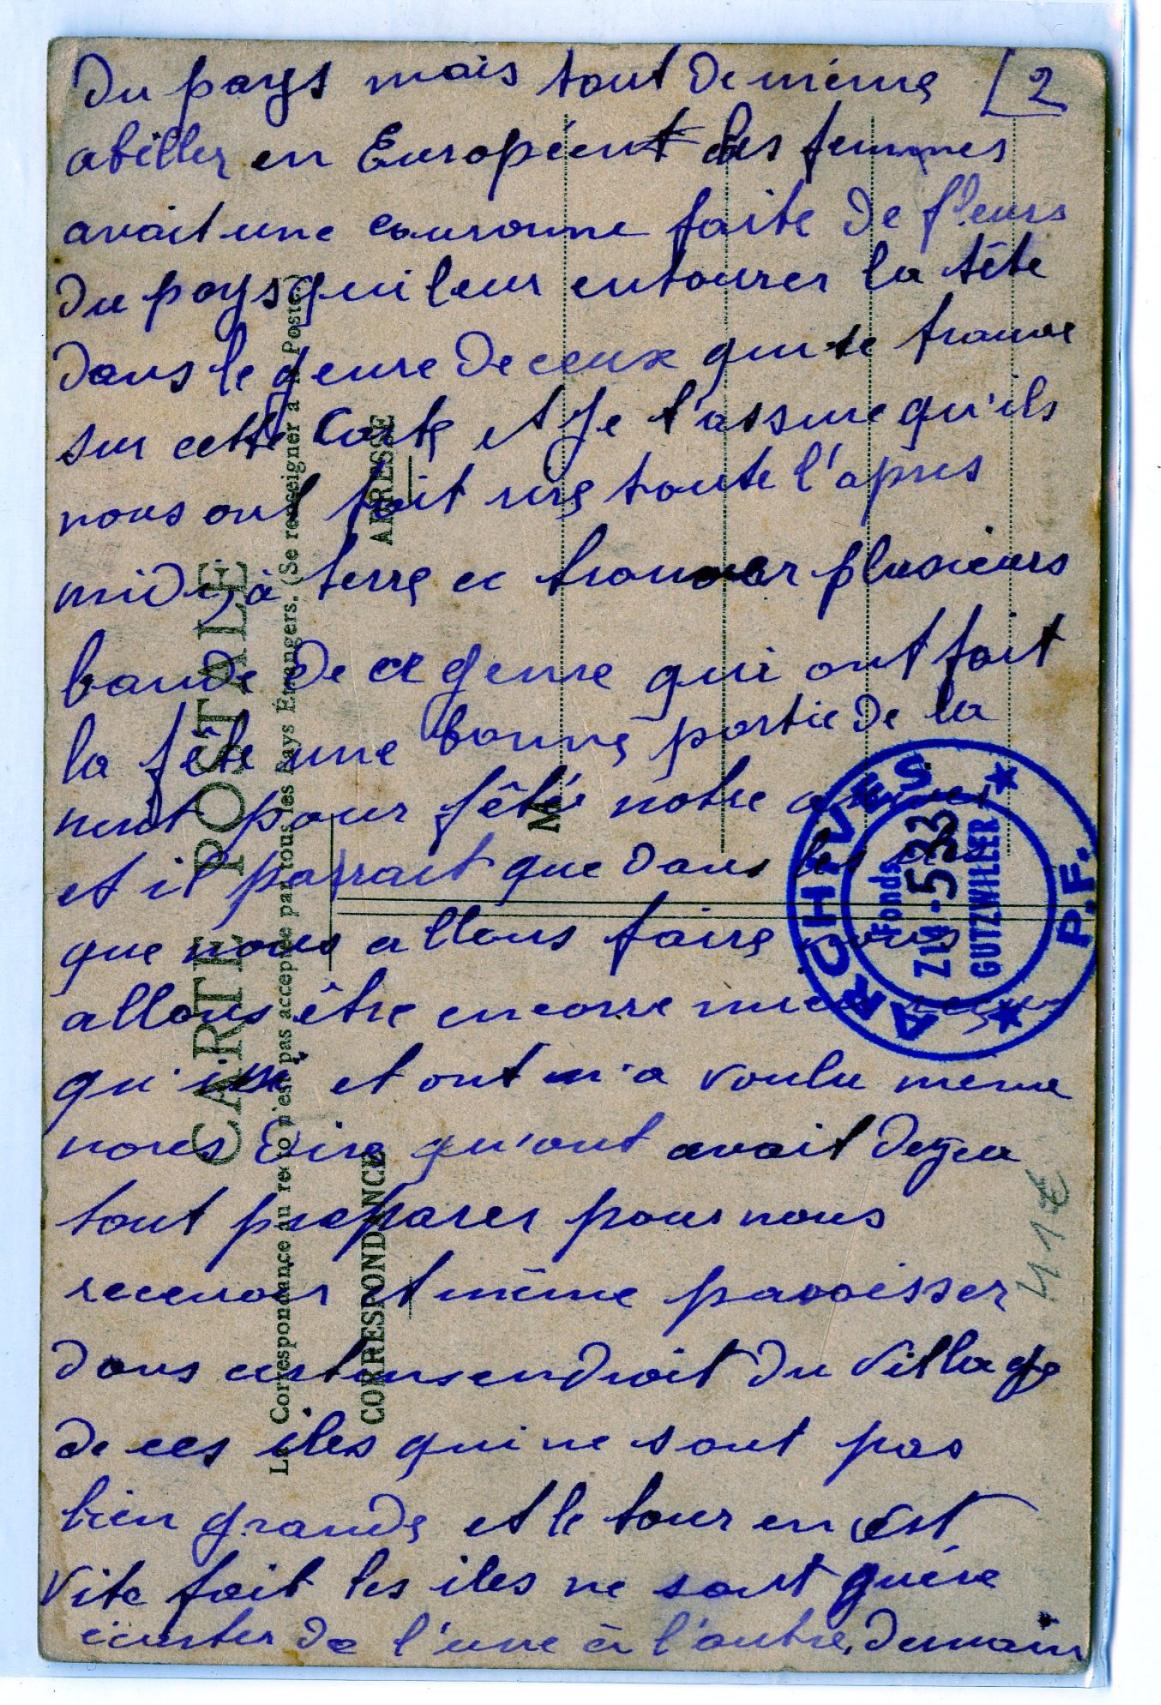 du pays mais tout de même [2
abiller en Européent des femmes
avait une couronne faite de fleurs
du pays qui leur entourer la tête
dans le genre de ceux qui se trouve
sur cette Carte et Je t'assure qu'ils
nous ont fait rire toute l'après
midi, à terre ce trouver plusieurs
bande de ce genre qui ont fait
la fête une bonne partie de la
nuit pour fêté notre
et il parrait que dans les
que nous allons faire nous
allons être encorre mieux reçu
qu'ici et ont n'a voulu meme
nous dire qu'ont avait dejea
tout preparer pour nous
recevoir et même pavoisser
dans certains endroit du Village
de ces iles qui ne sont pas
bien grande et le tour en est
vite fait les iles ne sont guère
écarter de l'une à l'autre, demain
CARTE POSTALE
La Correspondance au recto n'est pas acceptée par tous les Pays Étrangers. (Se renseigner à la Poste)
CORRESPONDANCE
ADRESSE
M
ARCHIVES P.F.
Fonds
GUTZWILLER
41€